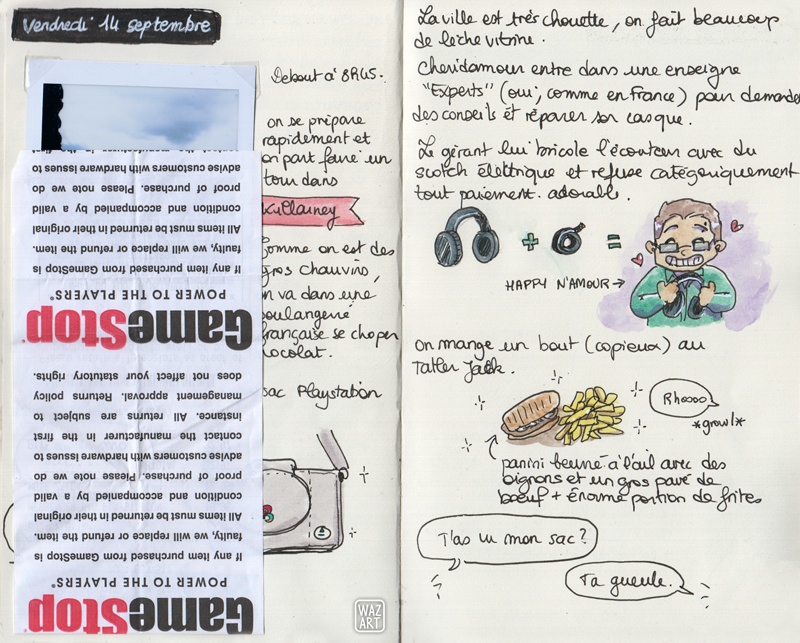 Vendredi 14 septembre
Debout à 8h45.
on se prépare
rapidement et
on part faire un
tour dans
Killarney
comme on est des
gros chauvins,
on va dans une
boulangerie
française se choper
sac Playstation
contact the manufacturer in the first
advise customers with hardware issues to
proof of purchase. Please note we do
condition and accompanied by a valid
All items must be returned in their original
faulty, we will replace or refund the item.
If any item purchased from GameStop is
POWER TO THE PLAYERS®
GameStop
does not affect your statutory rights.
management approval. Returns policy
instance. All returns are subject to
contact the manufacturer in the first
advise customers with hardware issues to
proof of purchase. Please note we do
condition and accompanied by a valid
All items must be returned in their original
faulty, we will replace or refund the item.
If any item purchased from GameStop is
POWER TO THE PLAYERS®
GameStop
La ville est très chouette, on fait beaucoup
de lèche vitrine.
Cheridamour entre dans une enseigne
"Experts" (oui, comme en France) pour demander
des conseils et réparer son casque.
Le gérant lui bricole l'écouteur avec du
scotch électrique et refuse catégoriquement
tout paiement. adorable.
+ =
HAPPY N'AMOUR →
on mange un bout (copieux) au
Tatler Jack.
Rhoooo
*growl*
panini beurré à l'ail avec des
oignons et un gros pavé de
bœuf + énorme portion de frites
T'as vu mon sac?
Ta gueule.
WAZ
ART